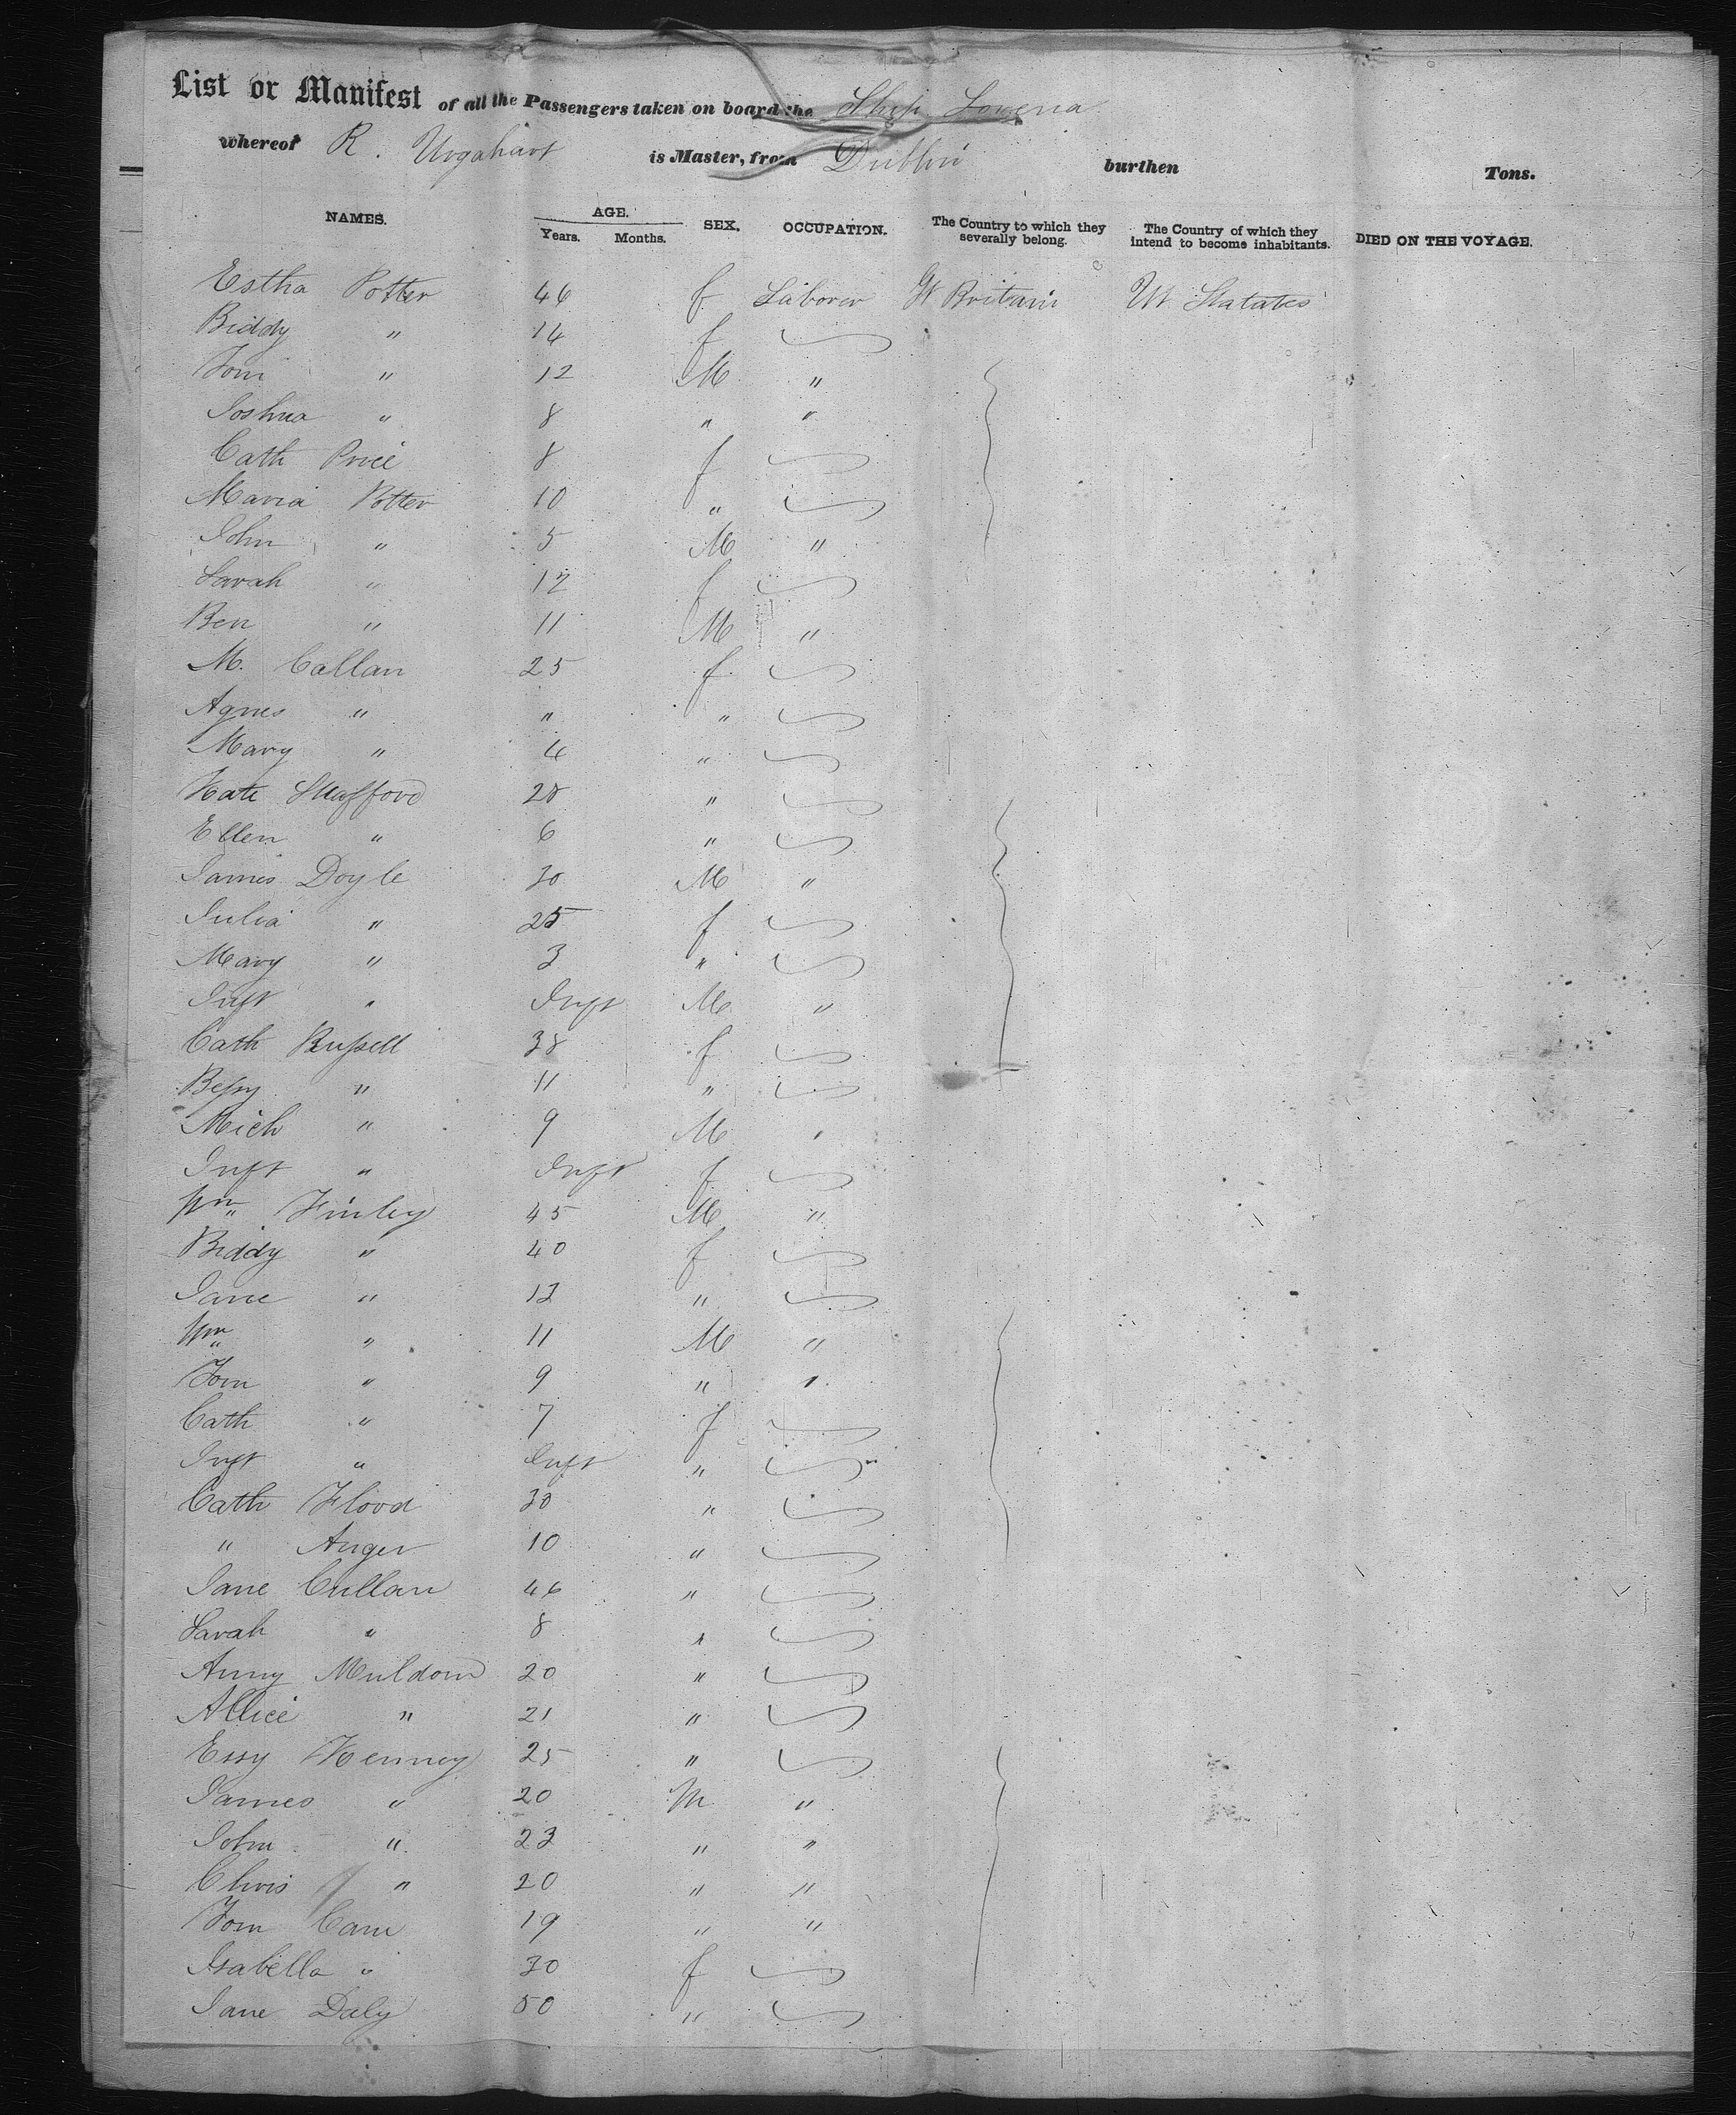 List or Manifest of all the Passengers taken on board the Ship Lovena
whereof R. Urgahart is Master, from Dublin burthen Tons.
NAMES. AGE. Years. Months. SEX. OCCUPATION. The Country to which they severally belong. The Country of which they intend to become inhabitants. DIED ON THE VOYAGE.
Estha Potter 46 f Laborer Gt Britain Ut Statates
Biddy " 14 f
Tom " 12 M "
Joshua " 8 " "
Cath Price 8 f
Maria Potter 10 "
John " 5 M "
Sarah " 12 f
Ben " 11 M "
M. Callan 25 f
Agnes " " "
Mary " 4 "
Kate Stafford 28 "
Ellen " 6 "
James Doyle 30 M "
Julia " 25 f
Mary " 3 "
Inft " Inft M "
Cath Russell 38 f
Bessy " 11 "
Mich " 9 M "
Inft " Inft f
Wm Finley 45 M "
Biddy " 40 f
Jane " 13 "
Wm " 11 M "
Tom " 9 " "
Cath " 7 f
Inft " Inft "
Cath Flood 30 "
" Anger 10 "
Jane Cullan 46 "
Sarah " 8 "
Anny Muldoon 20 "
Allice " 21 "
Essy Kenney 25 "
James " 20 M "
John " 23 " "
Chris " 20 " "
Tom Cane 19 " "
Isabella " 30 f
Jane Daly 50 "